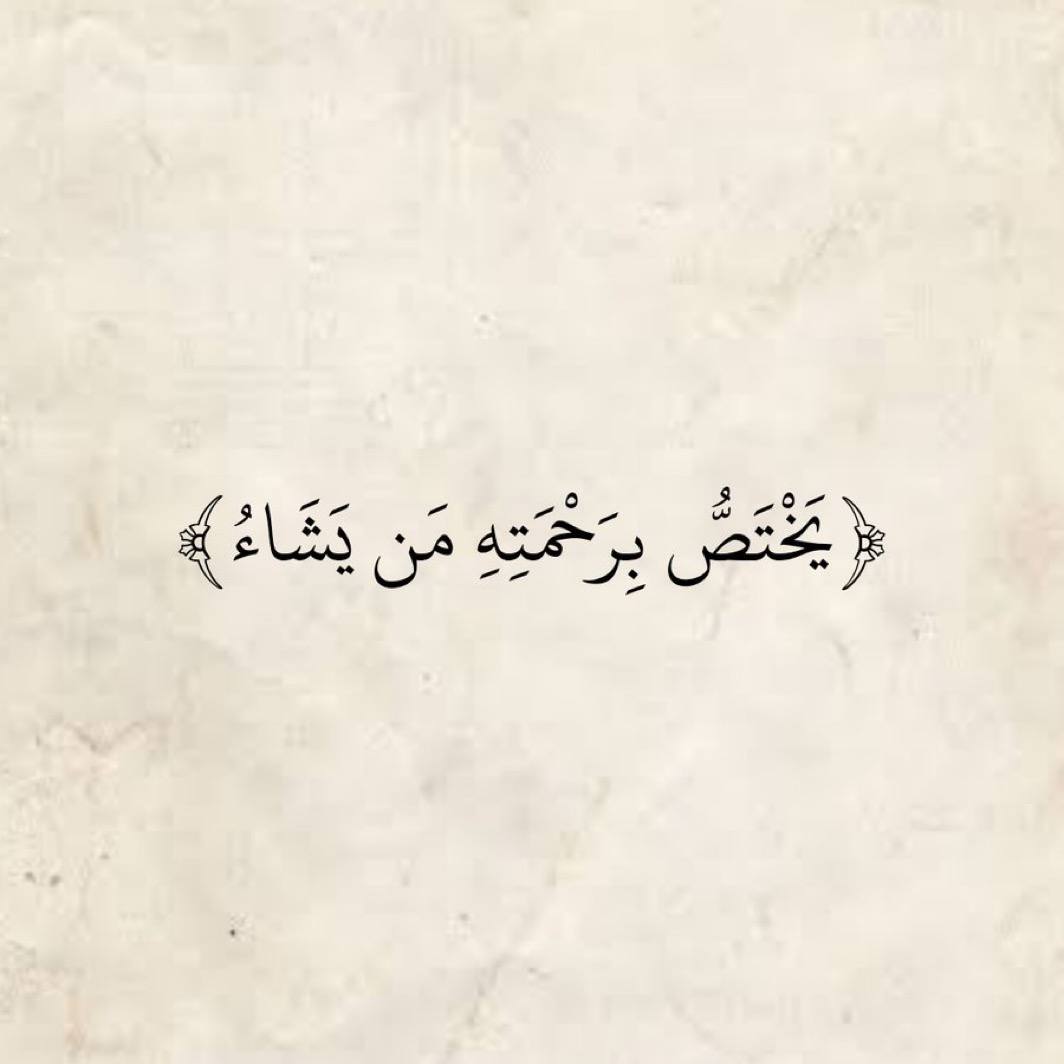 ﴿يَخْتَصُّ بِرَحْمَتِهِ مَن يَشَاءُ﴾